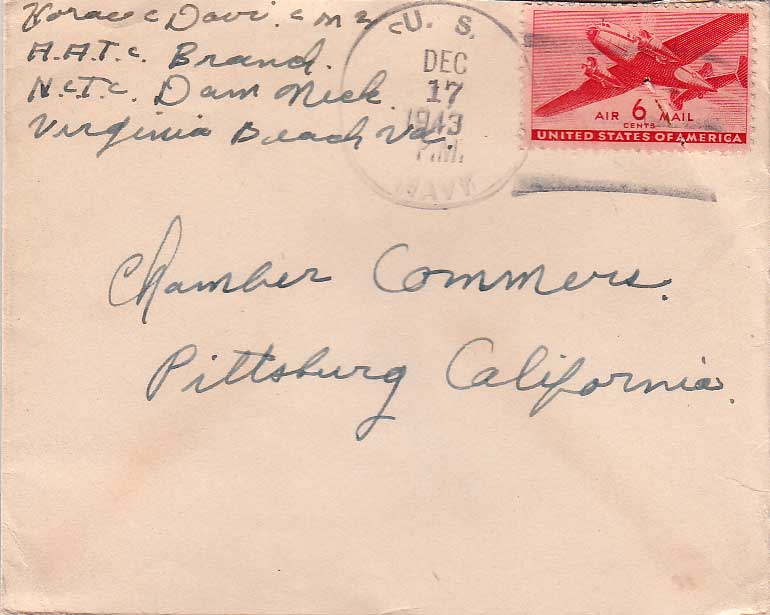 Horace Davi. c M 2 c
A.A.T.c. Brand.
N.c.T.c. Dam Neck.
Virginia Beach Va.
U. S.
DEC
17
1943
P.M.
NAVY
AIR 6 MAIL
CENTS
UNITED STATES OF AMERICA
Chamber Commers.
Pittsburg California.